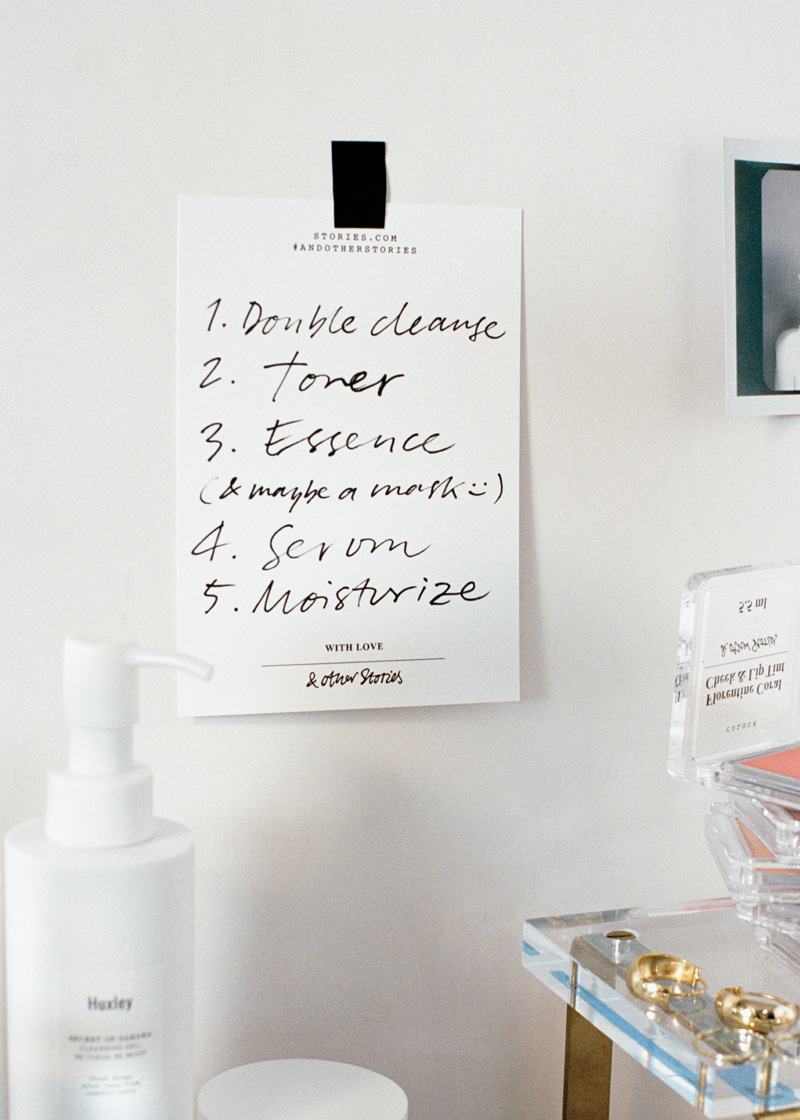 STORIES.COM
#ANDOTHERSTORIES
1. Double cleanse
2. Toner
3. Essence
(& maybe a mask :))
4. Serum
5. Moisturize
WITH LOVE
& other Stories
5.5 ml
& other Stories
Cheek & Lip Tint
Florentine Coral
COLOUR
Huxley
SECRET OF SAHARA